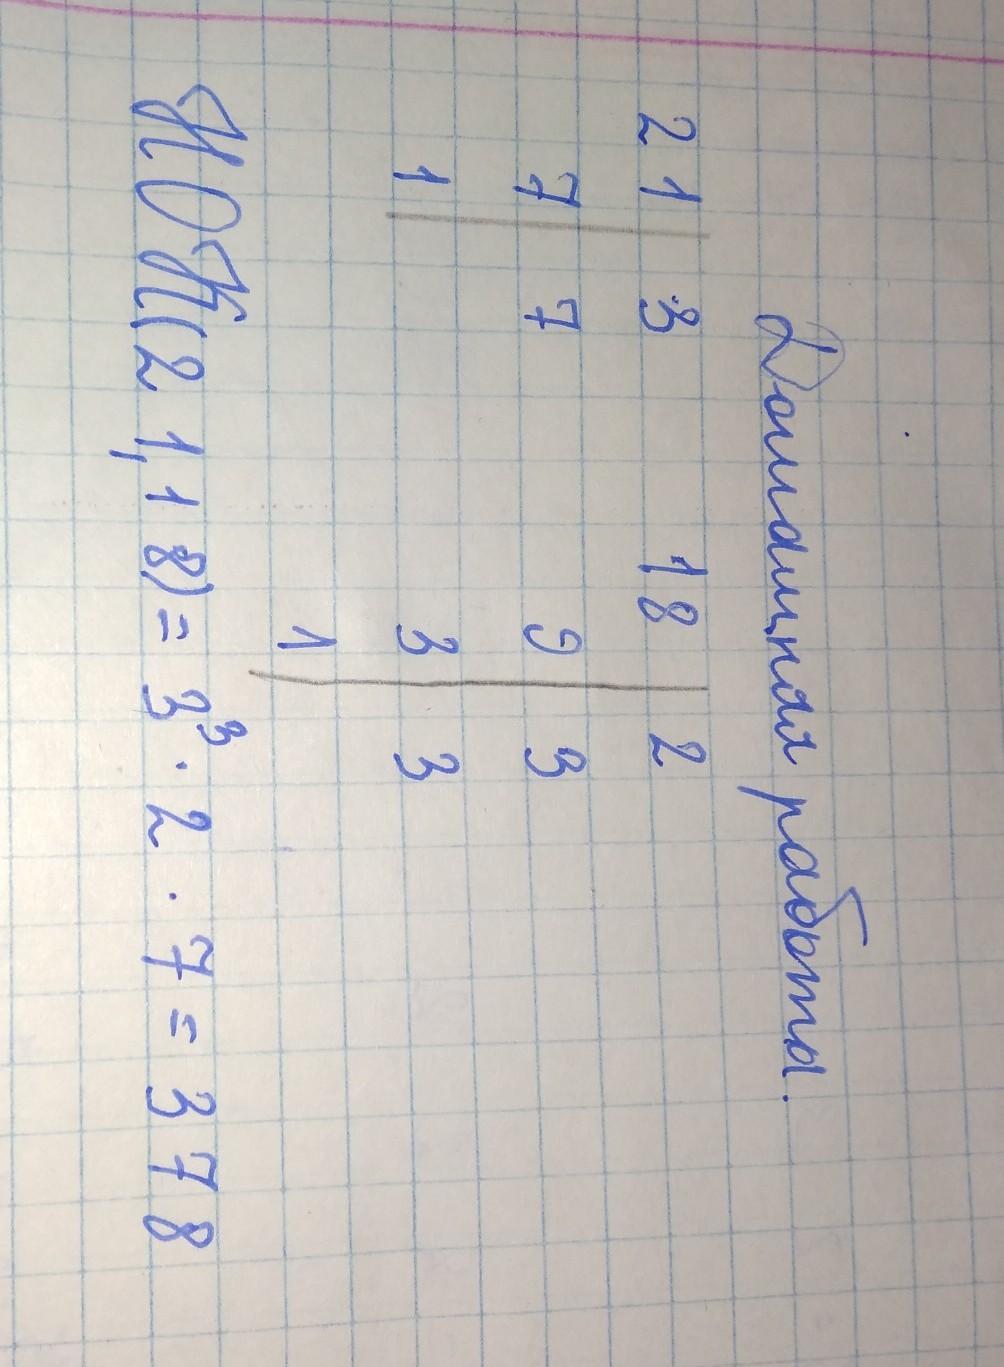 Домашняя работа.
21 3 18 2
7 7 9 3
1 3 3
1
НОК(21,18)=3³·2·7=378